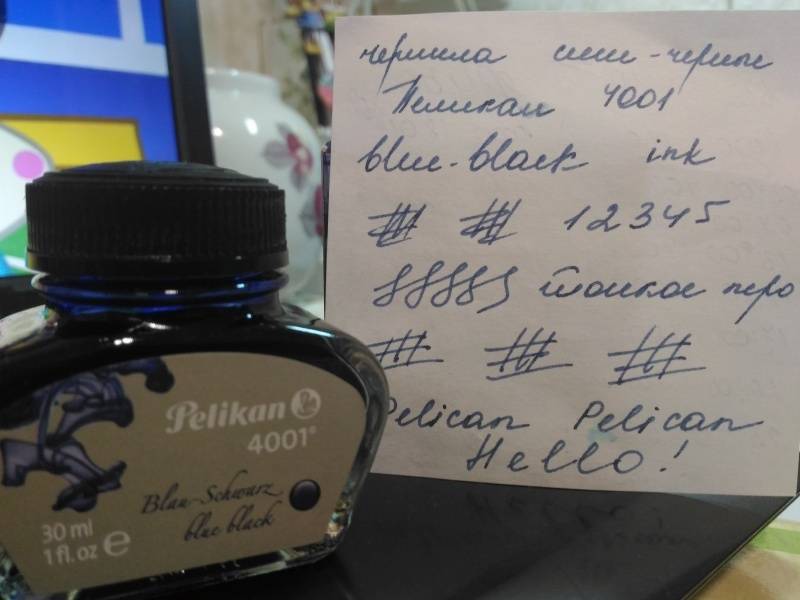 чернила сине-черные
Пеликан 4001
blue-black ink
12345
тонкое перо
Pelican Pelican
Hello!
Pelikan
4001®
Blau-Schwarz
blue black
30 ml
1 fl. oz e